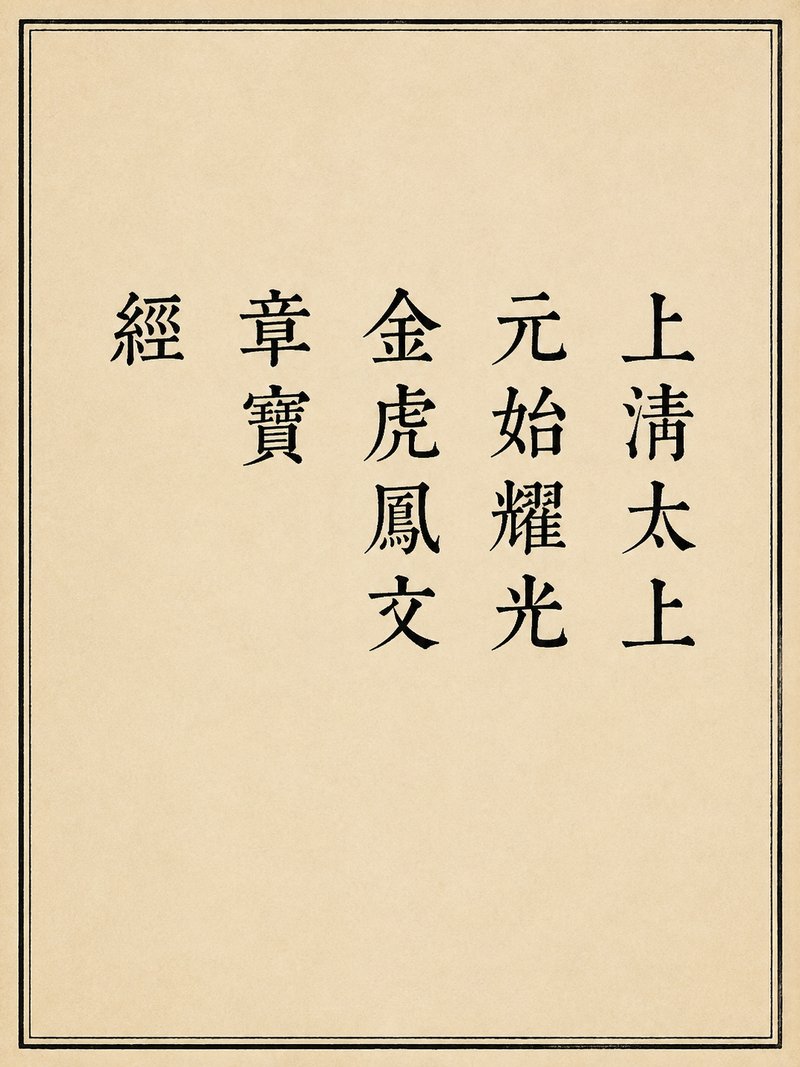 上淸太上
元始耀光
金虎鳳文
章寶
經